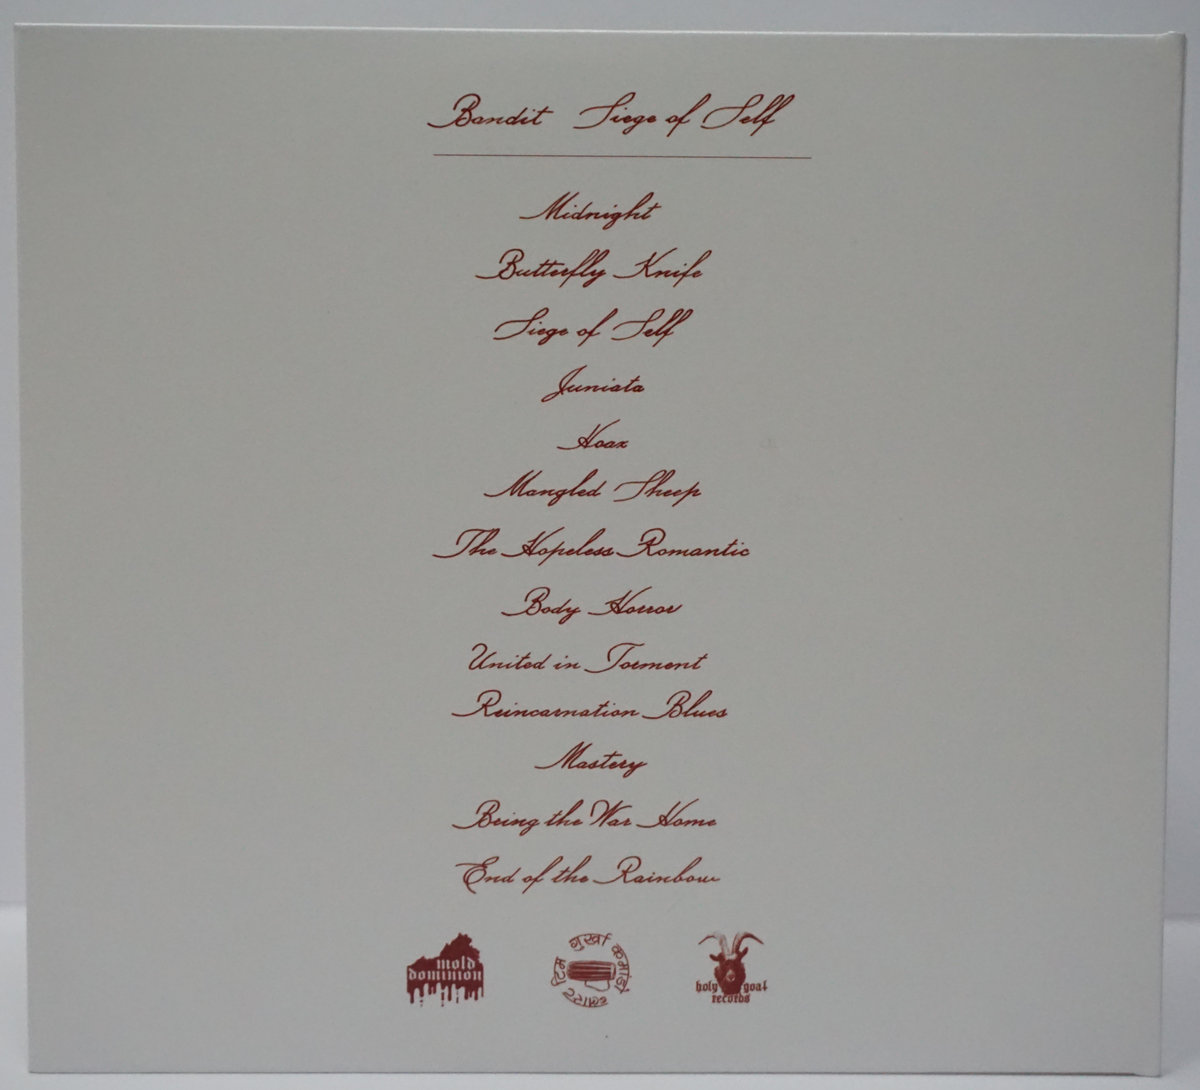 Bandit Siege of Self
Midnight
Butterfly Knife
Siege of Self
Juniata
Hoax
Mangled Sheep
The Hopeless Romantic
Body Horror
United in Torment
Reincarnation Blues
Mastery
Bring the War Home
End of the Rainbow
mold
dominion
गुर्खा कमांडो
holy goat
records